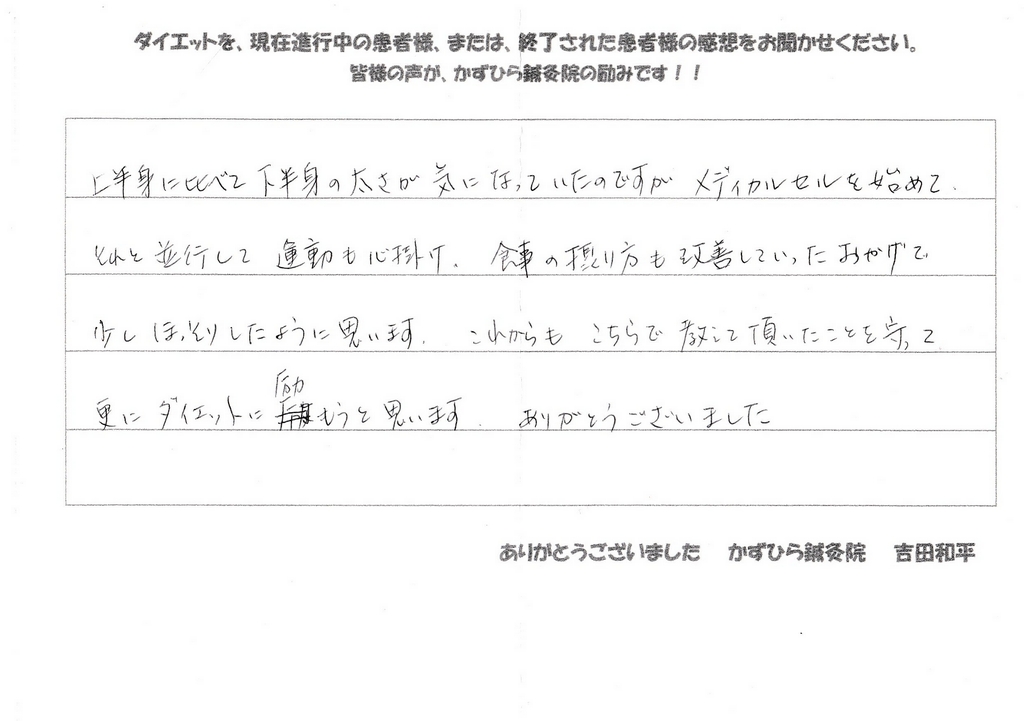 ダイエットを、現在進行中の患者様、または、終了された患者様の感想をお聞かせください。
皆様の声が、かずひら鍼灸院の励みです！！
上半身に比べて下半身の太さが気になっていたのですが メディカルセルを始めて、
それと並行して運動も心掛け、食事の摂り方も改善していったおかげで
少しほっそりしたように思います。これからもこちらで教えて頂いたことを守って
更にダイエットに励もうと思います。ありがとうございました
ありがとうございました かずひら鍼灸院 吉田和平